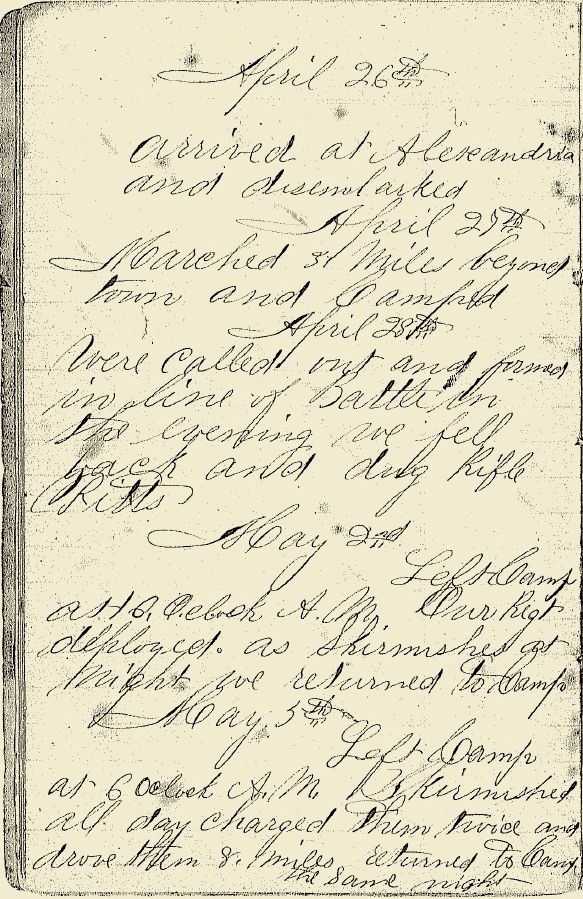 April 26th
arrived at Alexandria
and disembarked
April 27th
Marched 3 Miles beyond
town and Camped
April 28th
Were Called out and formed
in line of Battle in
the evening we fell
back and dug Rifle
Pitts
May 2nd
Left Camp
at Oclock A. M. Our Regt
deployed. as Skirmishes at
Night we returned to Camp
May 5th
Left Camp
at 6 Oclock A. M. Skirmished
all day charged them twice and
drove them 8. Miles returned to Camp
the same night